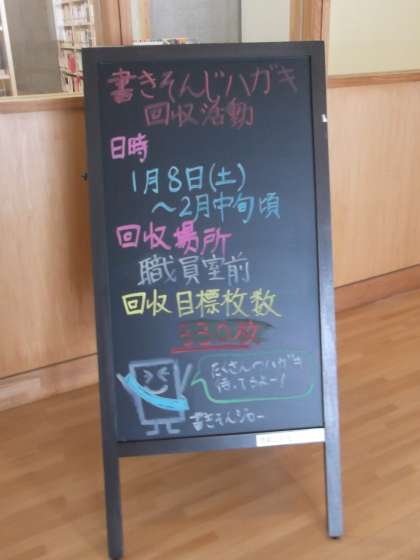 書きそんじハガキ
回収活動
日時
1月8日(土)
～2月中旬頃
回収場所
職員室前
回収目標枚数
330枚
たくさんのハガキ
待ってるよー!
書きそんジロー